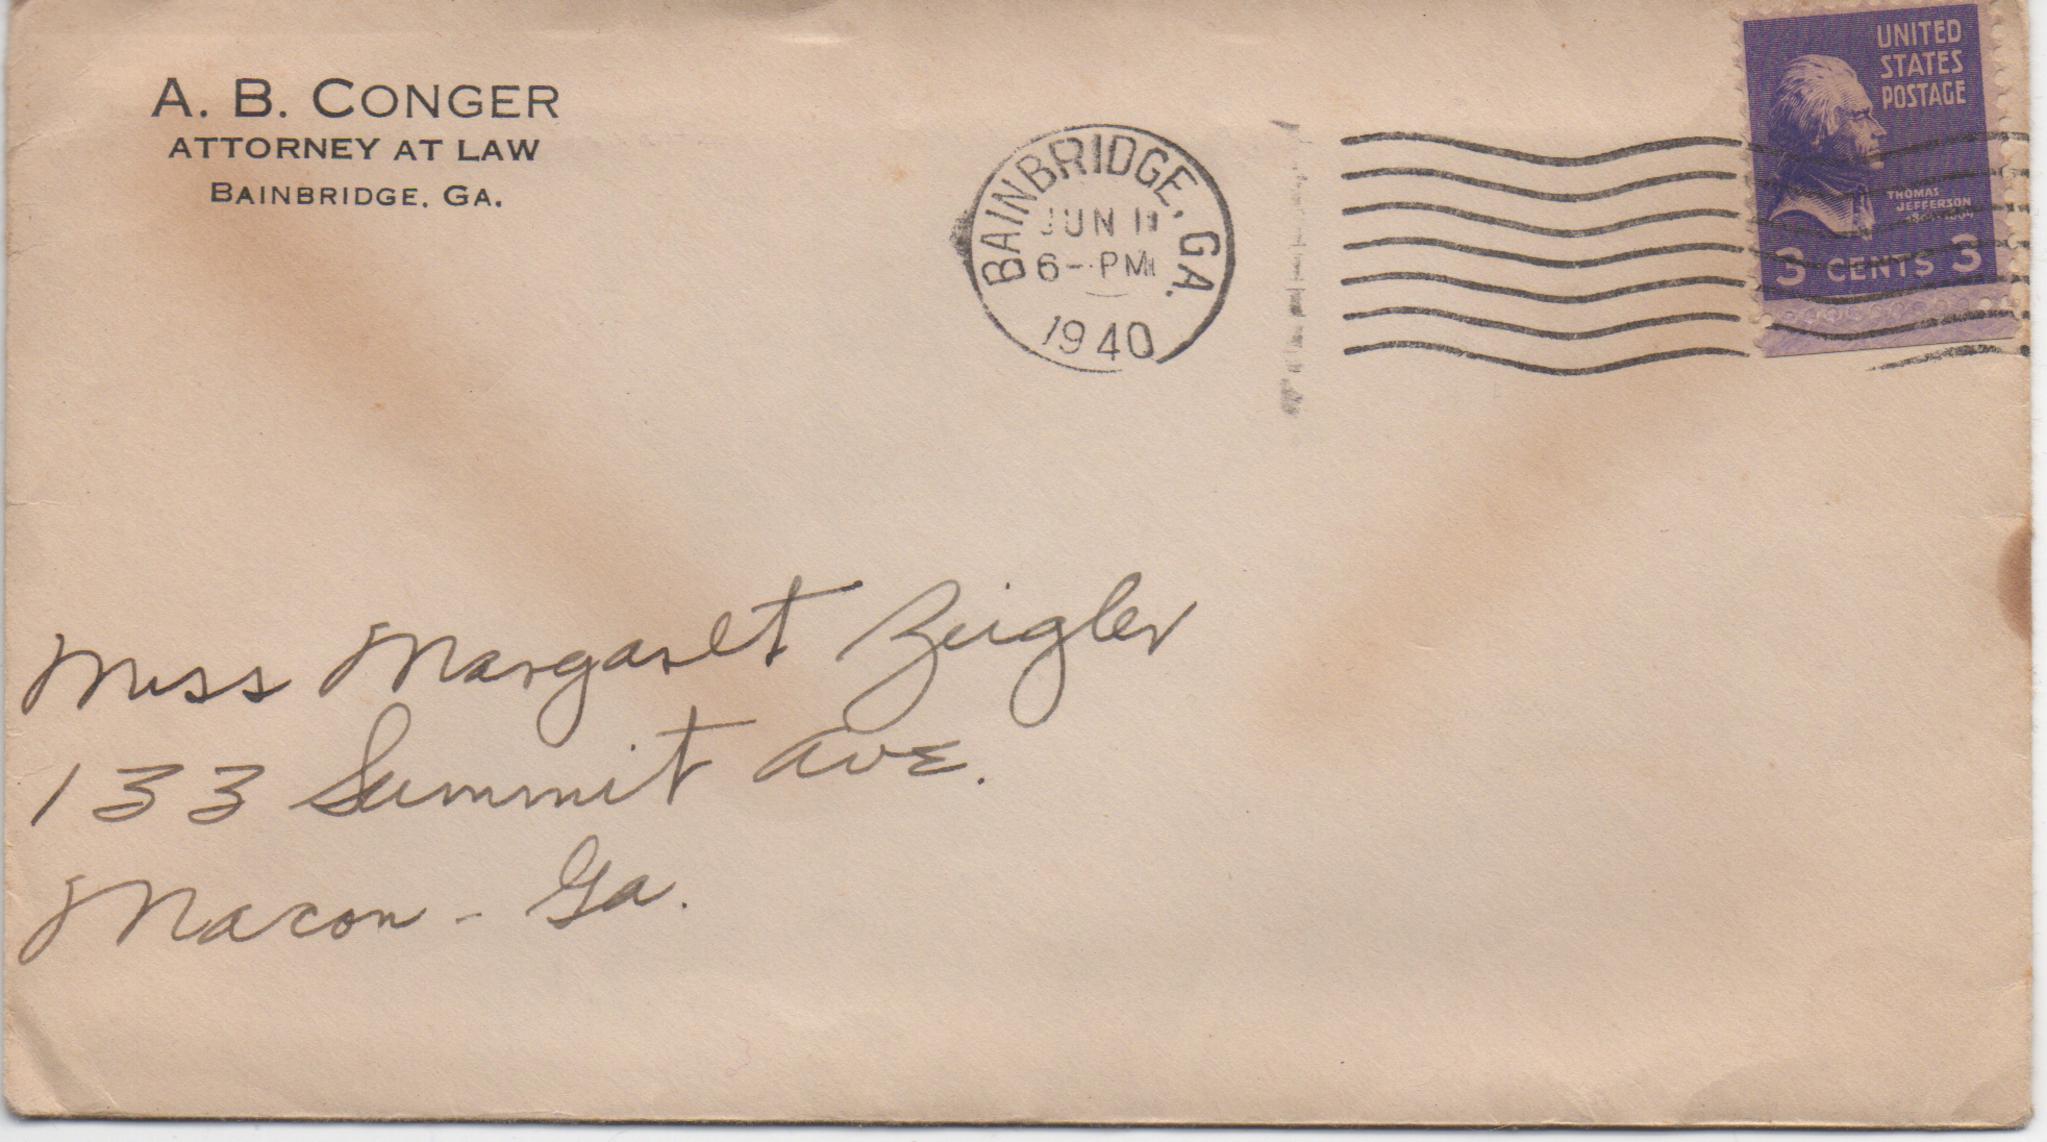 A. B. CONGER
ATTORNEY AT LAW
BAINBRIDGE, GA.
BAINBRIDGE, GA.
JUN 11
6-PM
1940
UNITED
STATES
POSTAGE
THOMAS
JEFFERSON
3 CENTS 3
Miss Margaret Zeigler
133 Summit Ave.
Macon - Ga.